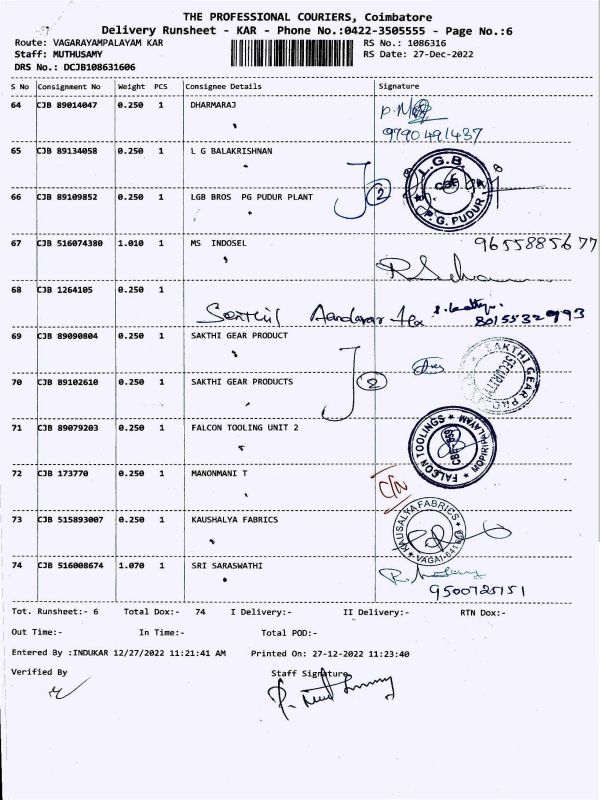 THE PROFESSIONAL COURIERS, Coimbatore
Delivery Runsheet - KAR - Phone No.:0422-3505555 - Page No.:6
Route: VAGARAYAMPALAYAM KAR RS No.: 1086316
Staff: MUTHUSAMY RS Date: 27-Dec-2022
DRS No.: DCJB108631606
S No Consignment No Weight PCS Consignee Details Signature
64 CJB 89014047 0.250 1 DHARMARAJ
9790491437
65 CJB 89134058 0.250 1 L G BALAKRISHNAN
L.G.B.
66 CJB 89109852 0.250 1 LGB BROS PG PUDUR PLANT
2
P.G. PUDUR
67 CJB 516074380 1.010 1 MS INDOSEL
9655885677
68 CJB 1264105 0.250 1
Senthil Aandavar Tex
8015532993
69 CJB 89090804 0.250 1 SAKTHI GEAR PRODUCT
SAKTHI GEAR PRO
SECURITY
70 CJB 89102610 0.250 1 SAKTHI GEAR PRODUCTS
2
71 CJB 89079203 0.250 1 FALCON TOOLING UNIT 2
FALCON TOOLINGS
72 CJB 173770 0.250 1 MANONMANI T
C/N
73 CJB 515893007 0.250 1 KAUSHALYA FABRICS
KAUSALYA FABRICS
VAGAI-641
74 CJB 516008674 1.070 1 SRI SARASWATHI
9500725151
Tot. Runsheet:- 6 Total Dox:- 74 I Delivery:- II Delivery:- RTN Dox:-
Out Time:- In Time:- Total POD:-
Entered By :INDUKAR 12/27/2022 11:21:41 AM Printed On: 27-12-2022 11:23:40
Verified By Staff Signature